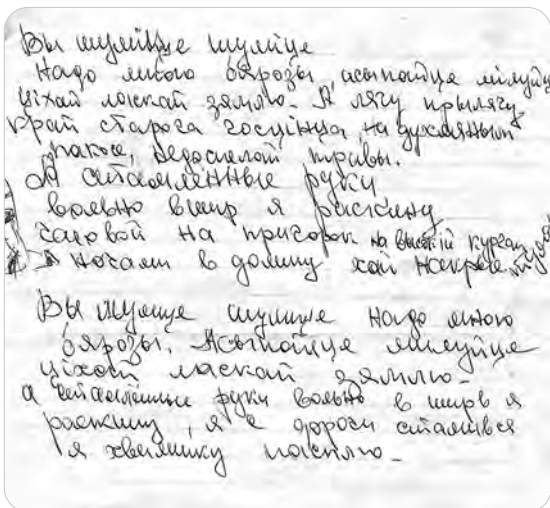 Вы шуміце шуміце
Надо мною бярозы, асыпайце мілуйце
ціхай ласкай зямлю. А лягу прылягу
край старога госцінца, на духмяным
пакосе, недоспелой травы.
А стамлённые руки
вольно вшир я раскину
галовой на пригорок на высокій курган
а ногами в долину хай накрые
Вы шумице шумице надо мною
бярозы. Асыпайце милуйце
ціхой ласкай зямлю.
а стамлённые руки вольно в ширь я
раскину, я с дороги стамився
я хвилинку посплю.